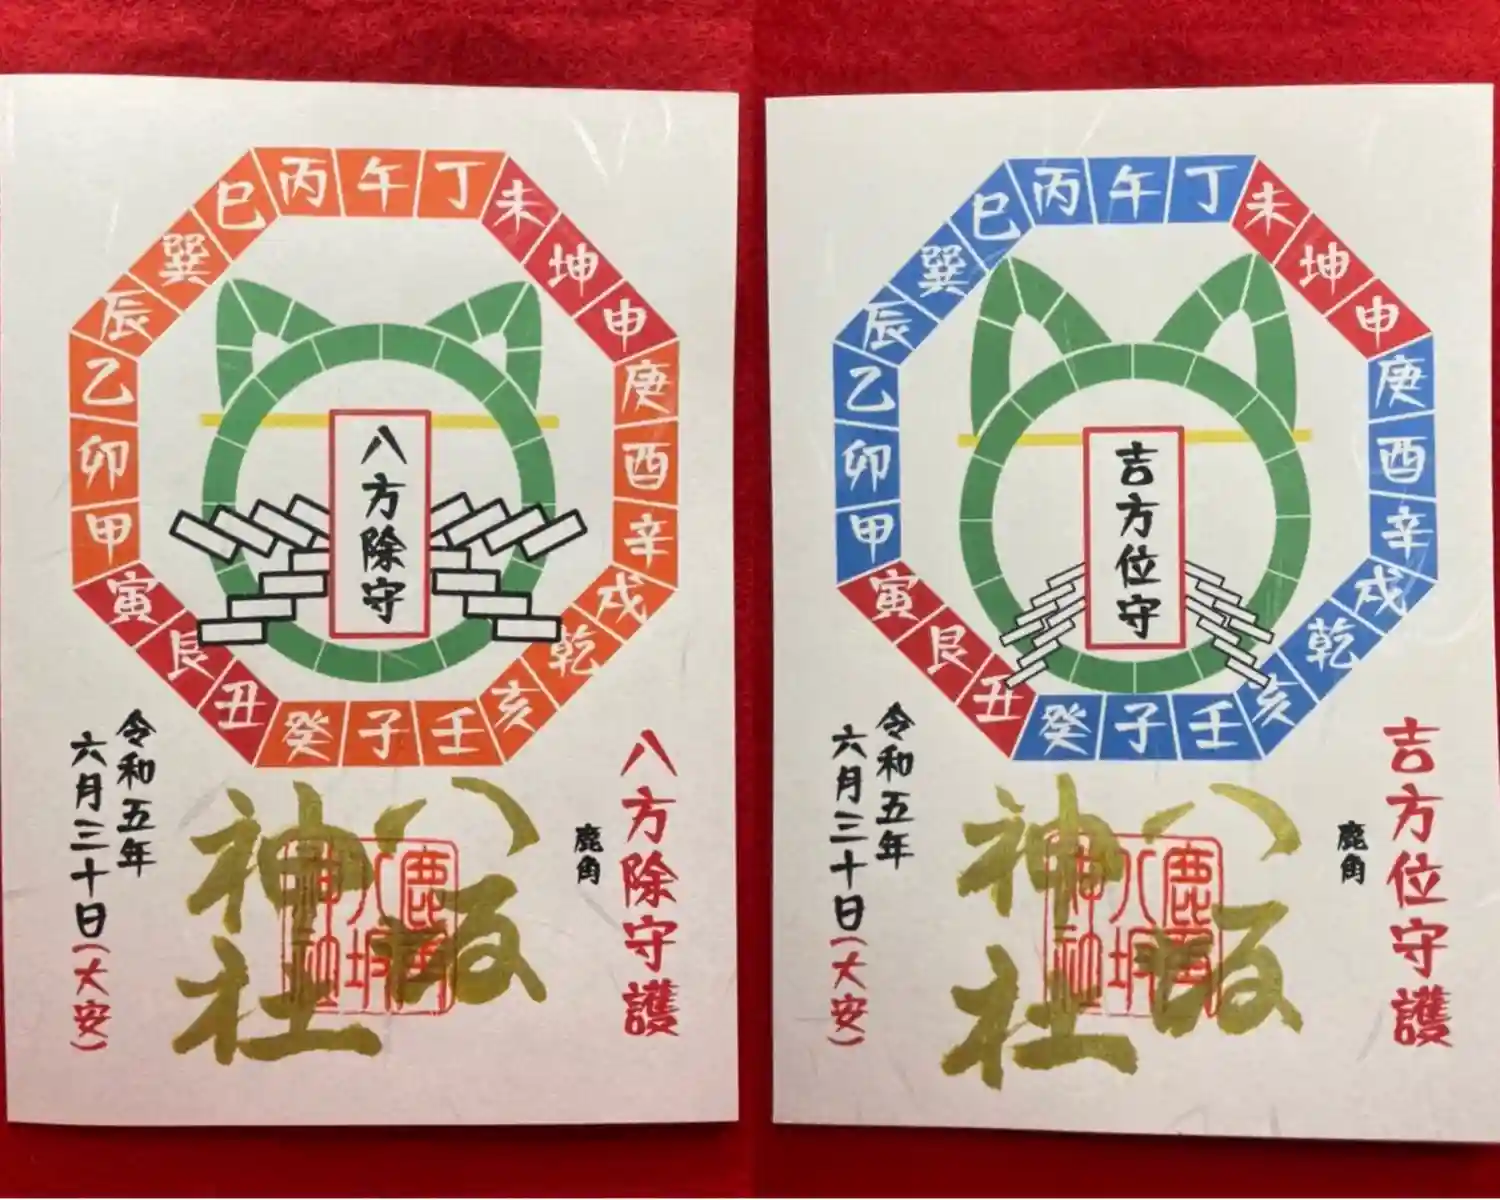 丙午丁未坤申庚酉辛戌乾亥壬子癸丑艮寅甲卯乙辰巽巳
八方除守
八方除守護
鹿角
八坂
神社
鹿角
八坂
神社
令和五年
六月三十日(大安)
丙午丁未坤申庚酉辛戌乾亥壬子癸丑艮寅甲卯乙辰巽巳
吉方位守
吉方位守護
鹿角
八坂
神社
鹿角
八坂
神社
令和五年
六月三十日(大安)